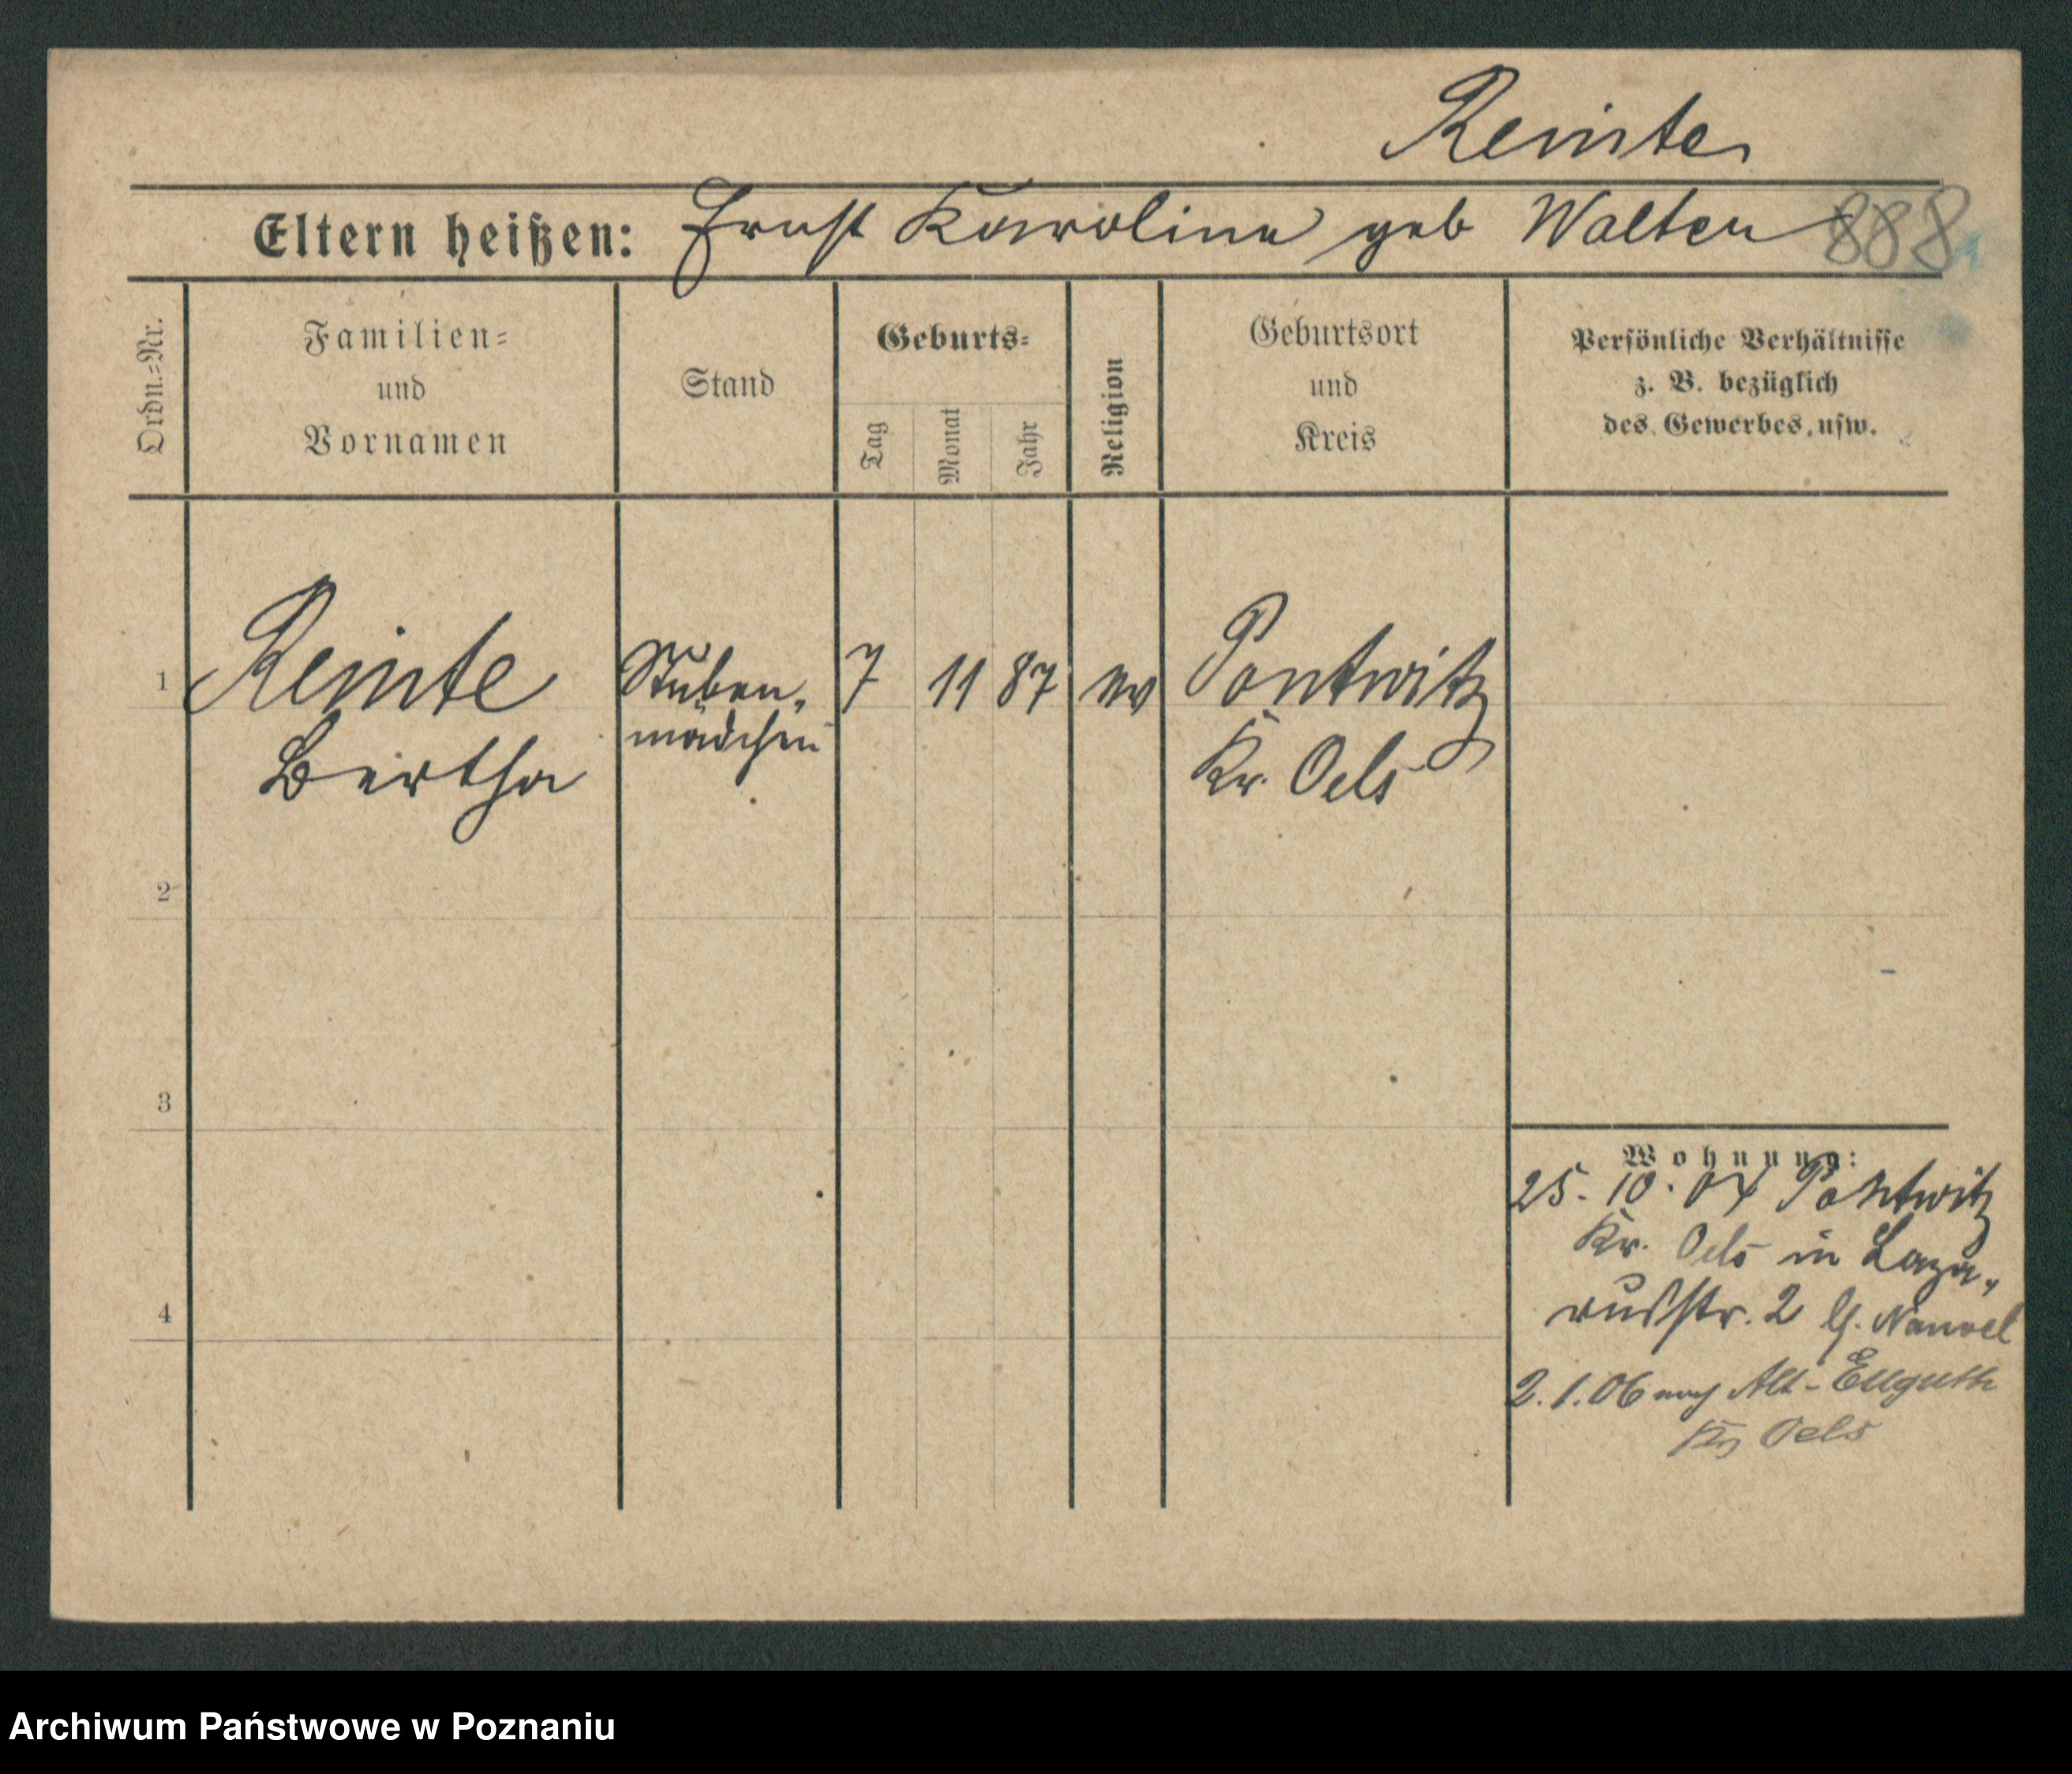 Reinte
Eltern heißen: Ernst Karoline geb Walter
888
Ordn.=Nr.
Familien= und Vornamen
Stand
Geburts=
Tag
Monat
Jahr
Religion
Geburtsort und Kreis
Persönliche Verhältnisse
z. B. bezüglich
des Gewerbes usw.
1 Reinte Stuben- 7 11 87 ev Pontwitz
Bertha mädchen Kr. Oels
2
3
4
Wohnung:
25. 10. 04 Pontwitz
Kr. Oels in Laza-
russtr. 2
2. 1. 06 nach Alt-Ellguth
Krs Oels
Archiwum Państwowe w Poznaniu